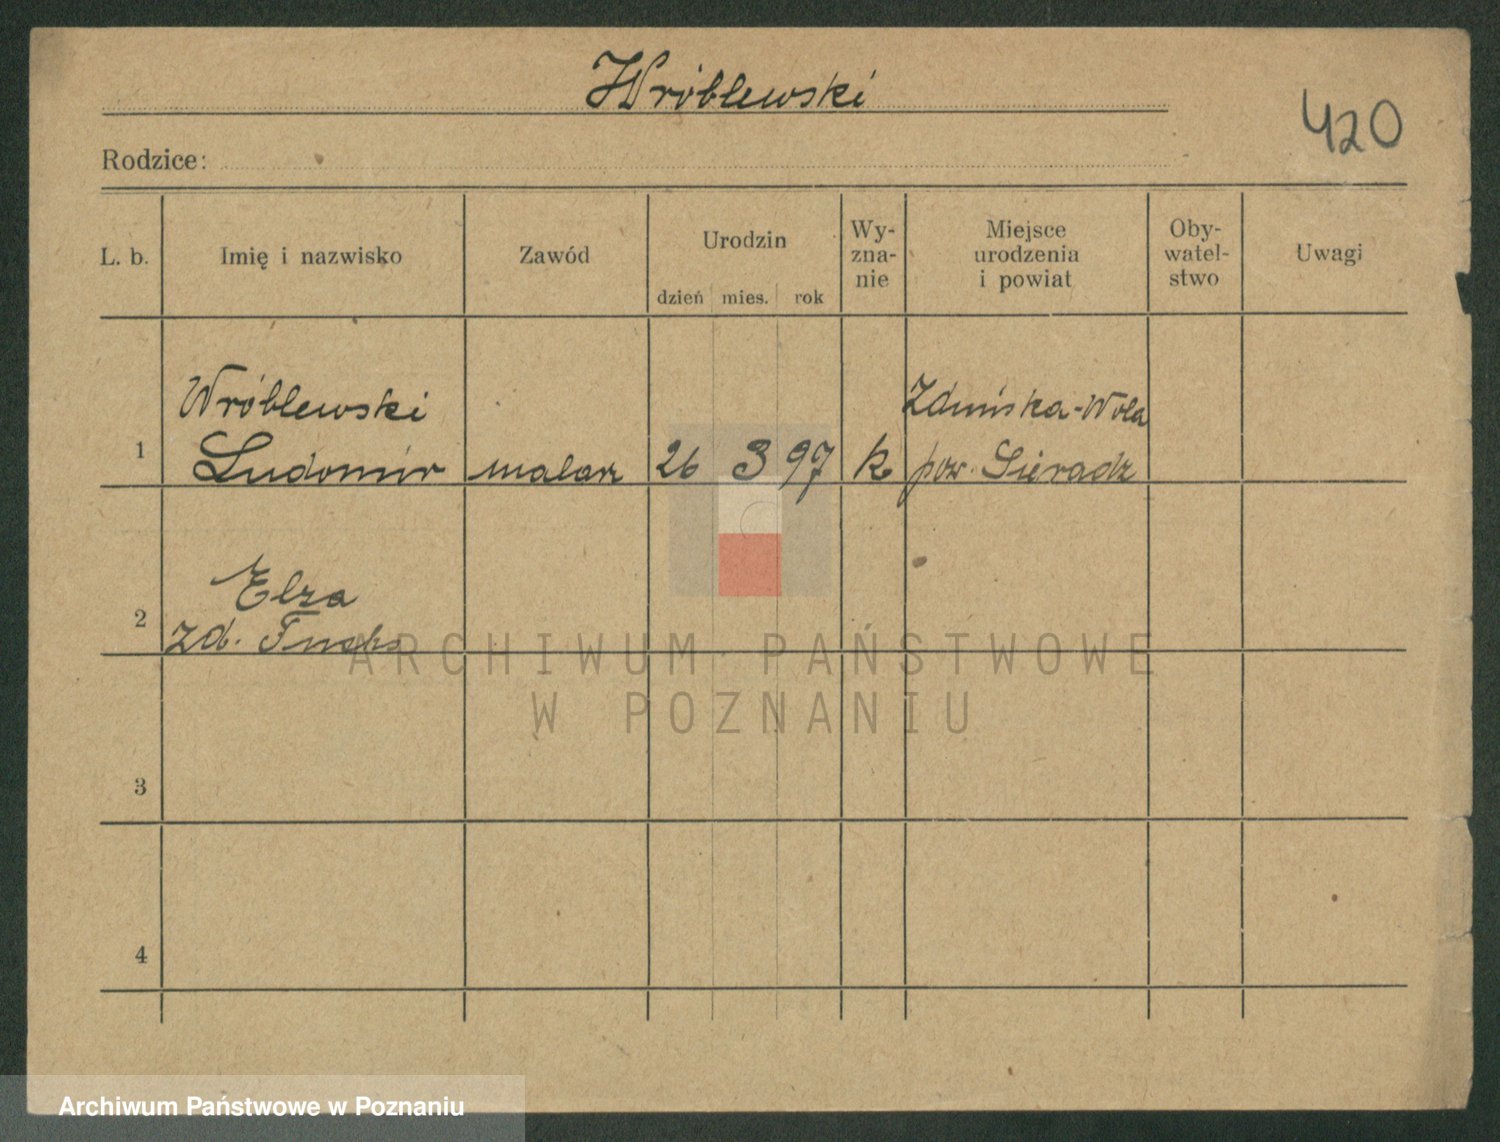 Wróblewski
420
Rodzice:
L. b.
Imię i nazwisko
Zawód
Urodzin
dzień mies. rok
Wy-
zna-
nie
Miejsce
urodzenia
i powiat
Oby-
watel-
stwo
Uwagi
1
Wróblewski
Ludomir
malarz
26 3 97
k
Zduńska-Wola
pow. Sieradz
2
Elza
zd. Fuchs
3
4
ARCHIWUM PAŃSTWOWE
W POZNANIU
Archiwum Państwowe w Poznaniu